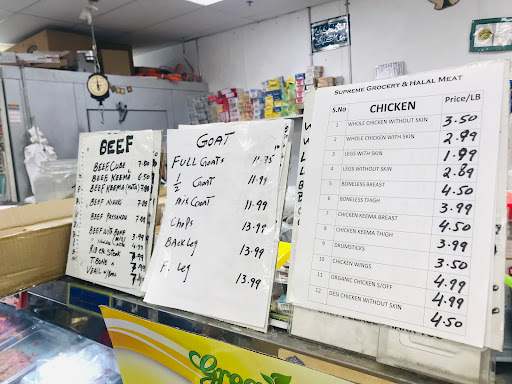 BEEF
BEEF CUBE 7.50
BEEF KEEMA 6.50
BEEF NIHARI 7.00
BEEF PASSANDA 7.00
BEEF WITH BONE 3.99
RIB EYE STEAK
T BONE
VEAL
GOAT
FULL GOATS 11.75
1/2 GOAT 11.99
MIX GOAT 11.99
CHOPS 13.99
BACK Leg 13.99
F. Leg 13.99
SUPREME GROCERY & HALAL MEAT
S.No CHICKEN Price/LB
1 WHOLE CHICKEN WITHOUT SKIN 3.50
2 WHOLE CHICKEN WITH SKIN 2.99
3 LEGS WITH SKIN 1.99
4 LEGS WITHOUT SKIN 2.89
5 BONELESS BREAST 4.50
6 BONELESS THIGH 3.99
7 CHICKEN KEEMA BREAST 4.50
8 CHICKEN KEEMA THIGH 3.99
9 DRUMSTICKS 3.50
10 CHICKEN WINGS 4.99
11 ORGANIC CHICKEN S/OFF 4.99
12 DESI CHICKEN WITHOUT SKIN 4.50